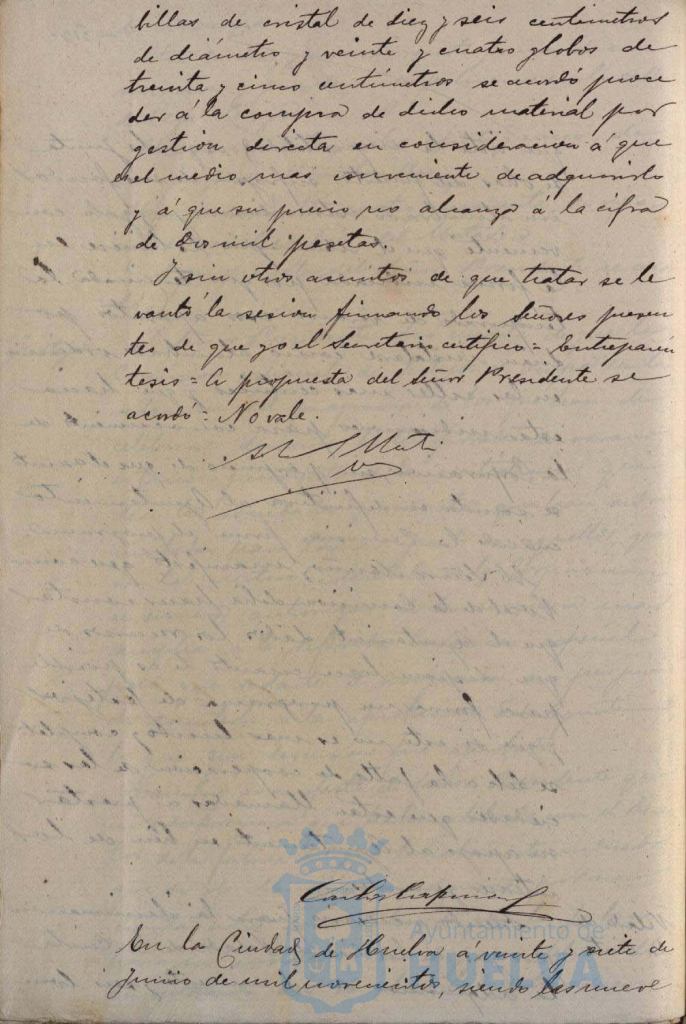 billas de cristal de diez y seis centimetros
de diámetro y veinte y cuatro globos de
treinta y cinco centímetros se acordó proce
der á la compra de dicho material por
gestión directa en consideracion á que
es el medio mas conveniente de adquirirlo
y á que su precio no alcanza á la cifra
de dos mil pesetas.
Y sin otros asuntos de que tratar se le
vantó la sesion firmando los Señores presen
tes de que yo el Secretario certifico = Entreparen
tesis = A propuesta del Señor Presidente se
acordó = No vale.
Ayuntamiento de
HUELVA
En la Ciudad de Huelva á veinte y siete de
Junio de mil novecientos, siendo las nueve